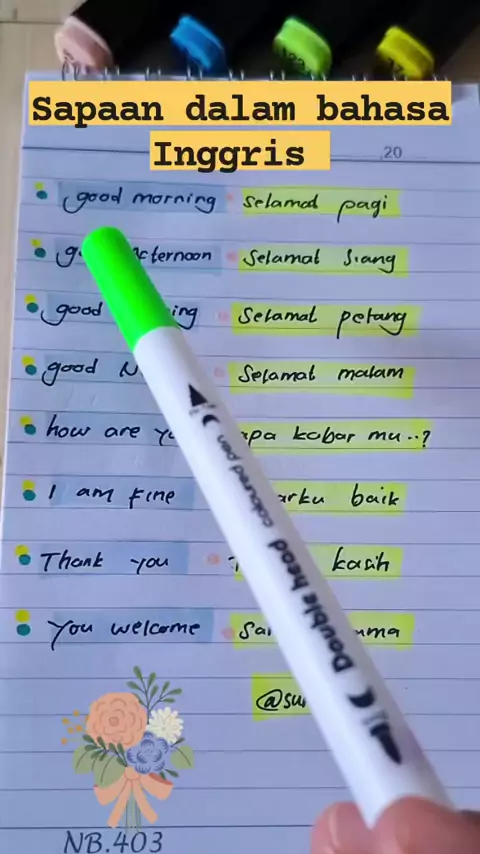 Sapaan dalam bahasa
Inggris
,20
good morning selamat pagi
Selamat siang
good Selamat petang
good Selamat malam
how are kabar mu..?
I am Fine baik
Thank you kasih
You welcome
Double head coloured pen
NB.403